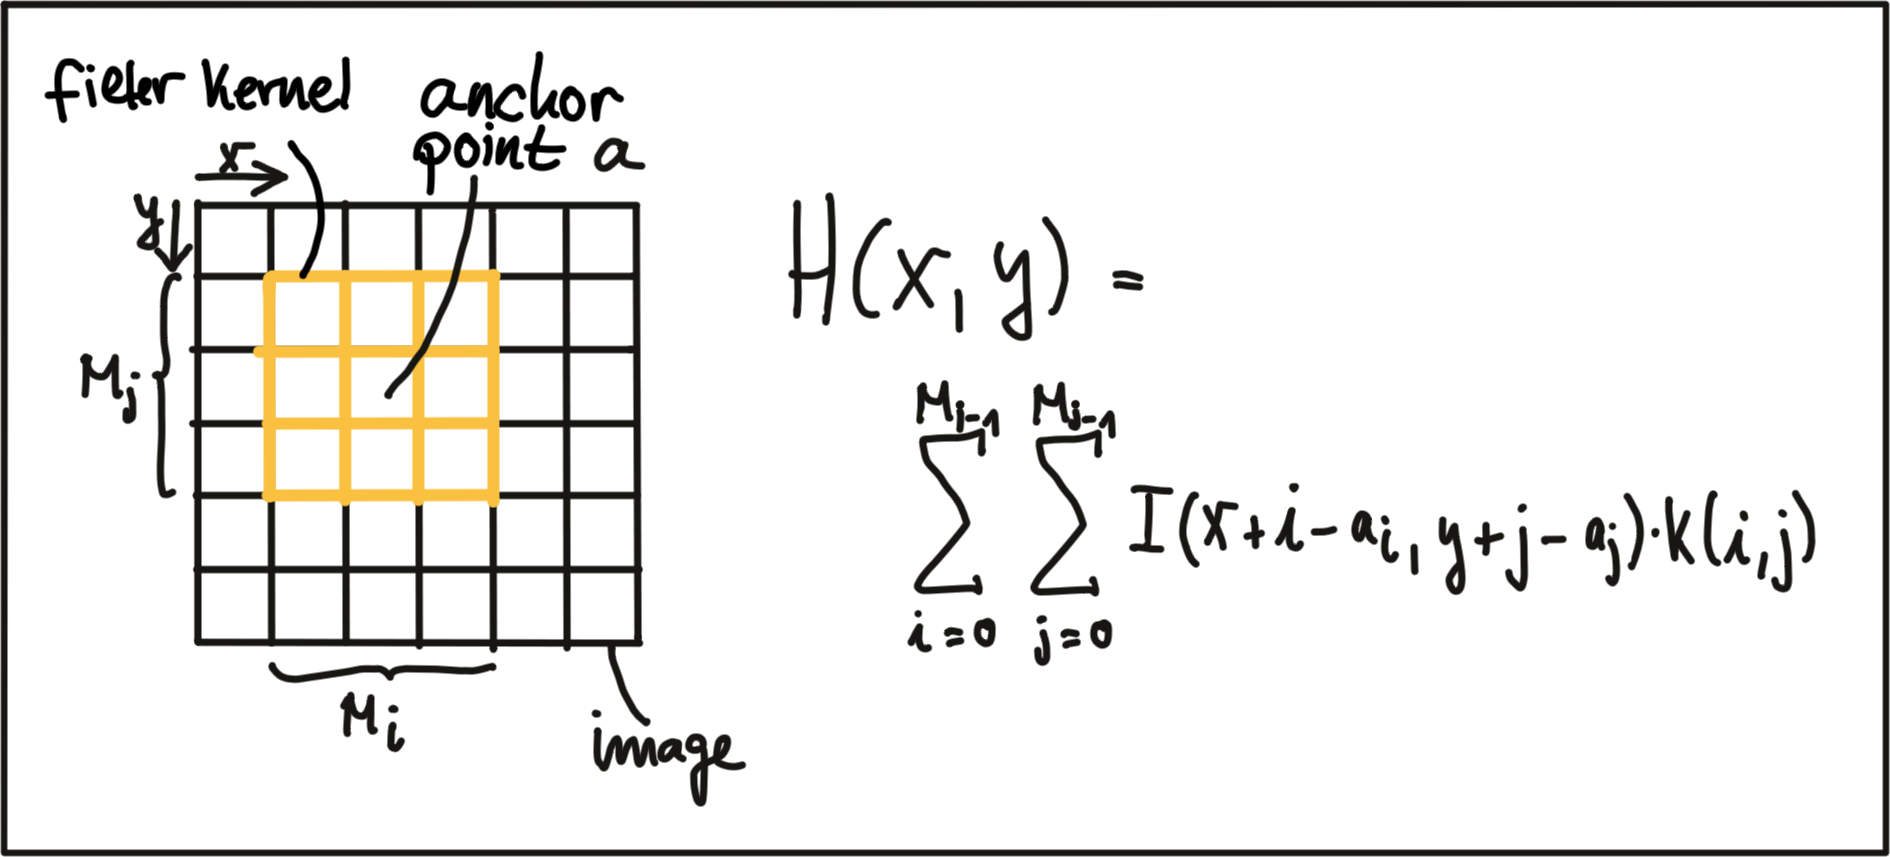 filter kernel
anchor
point a
x
y
Mj
Mi
image
H(x, y) =
Mi-1 Mj-1
∑ ∑ I(x+i-ai, y+j-aj)·K(i,j)
i=0 j=0